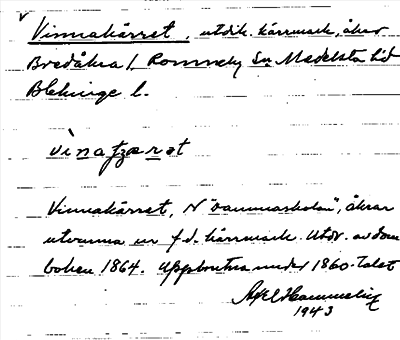 v
Vinnakärret, utdik. kärrmark, åker
Bredåkra f, Ronneby Sn Medelsta hd
Blekinge l.
vìnatʒærət
Vinnakärret, N "sammaskolan", åkrar
utvunna ur f.d. kärrmark. Utdr. av dom
boken 1864. Uppbrutna under 1860-talet
Axel
1943